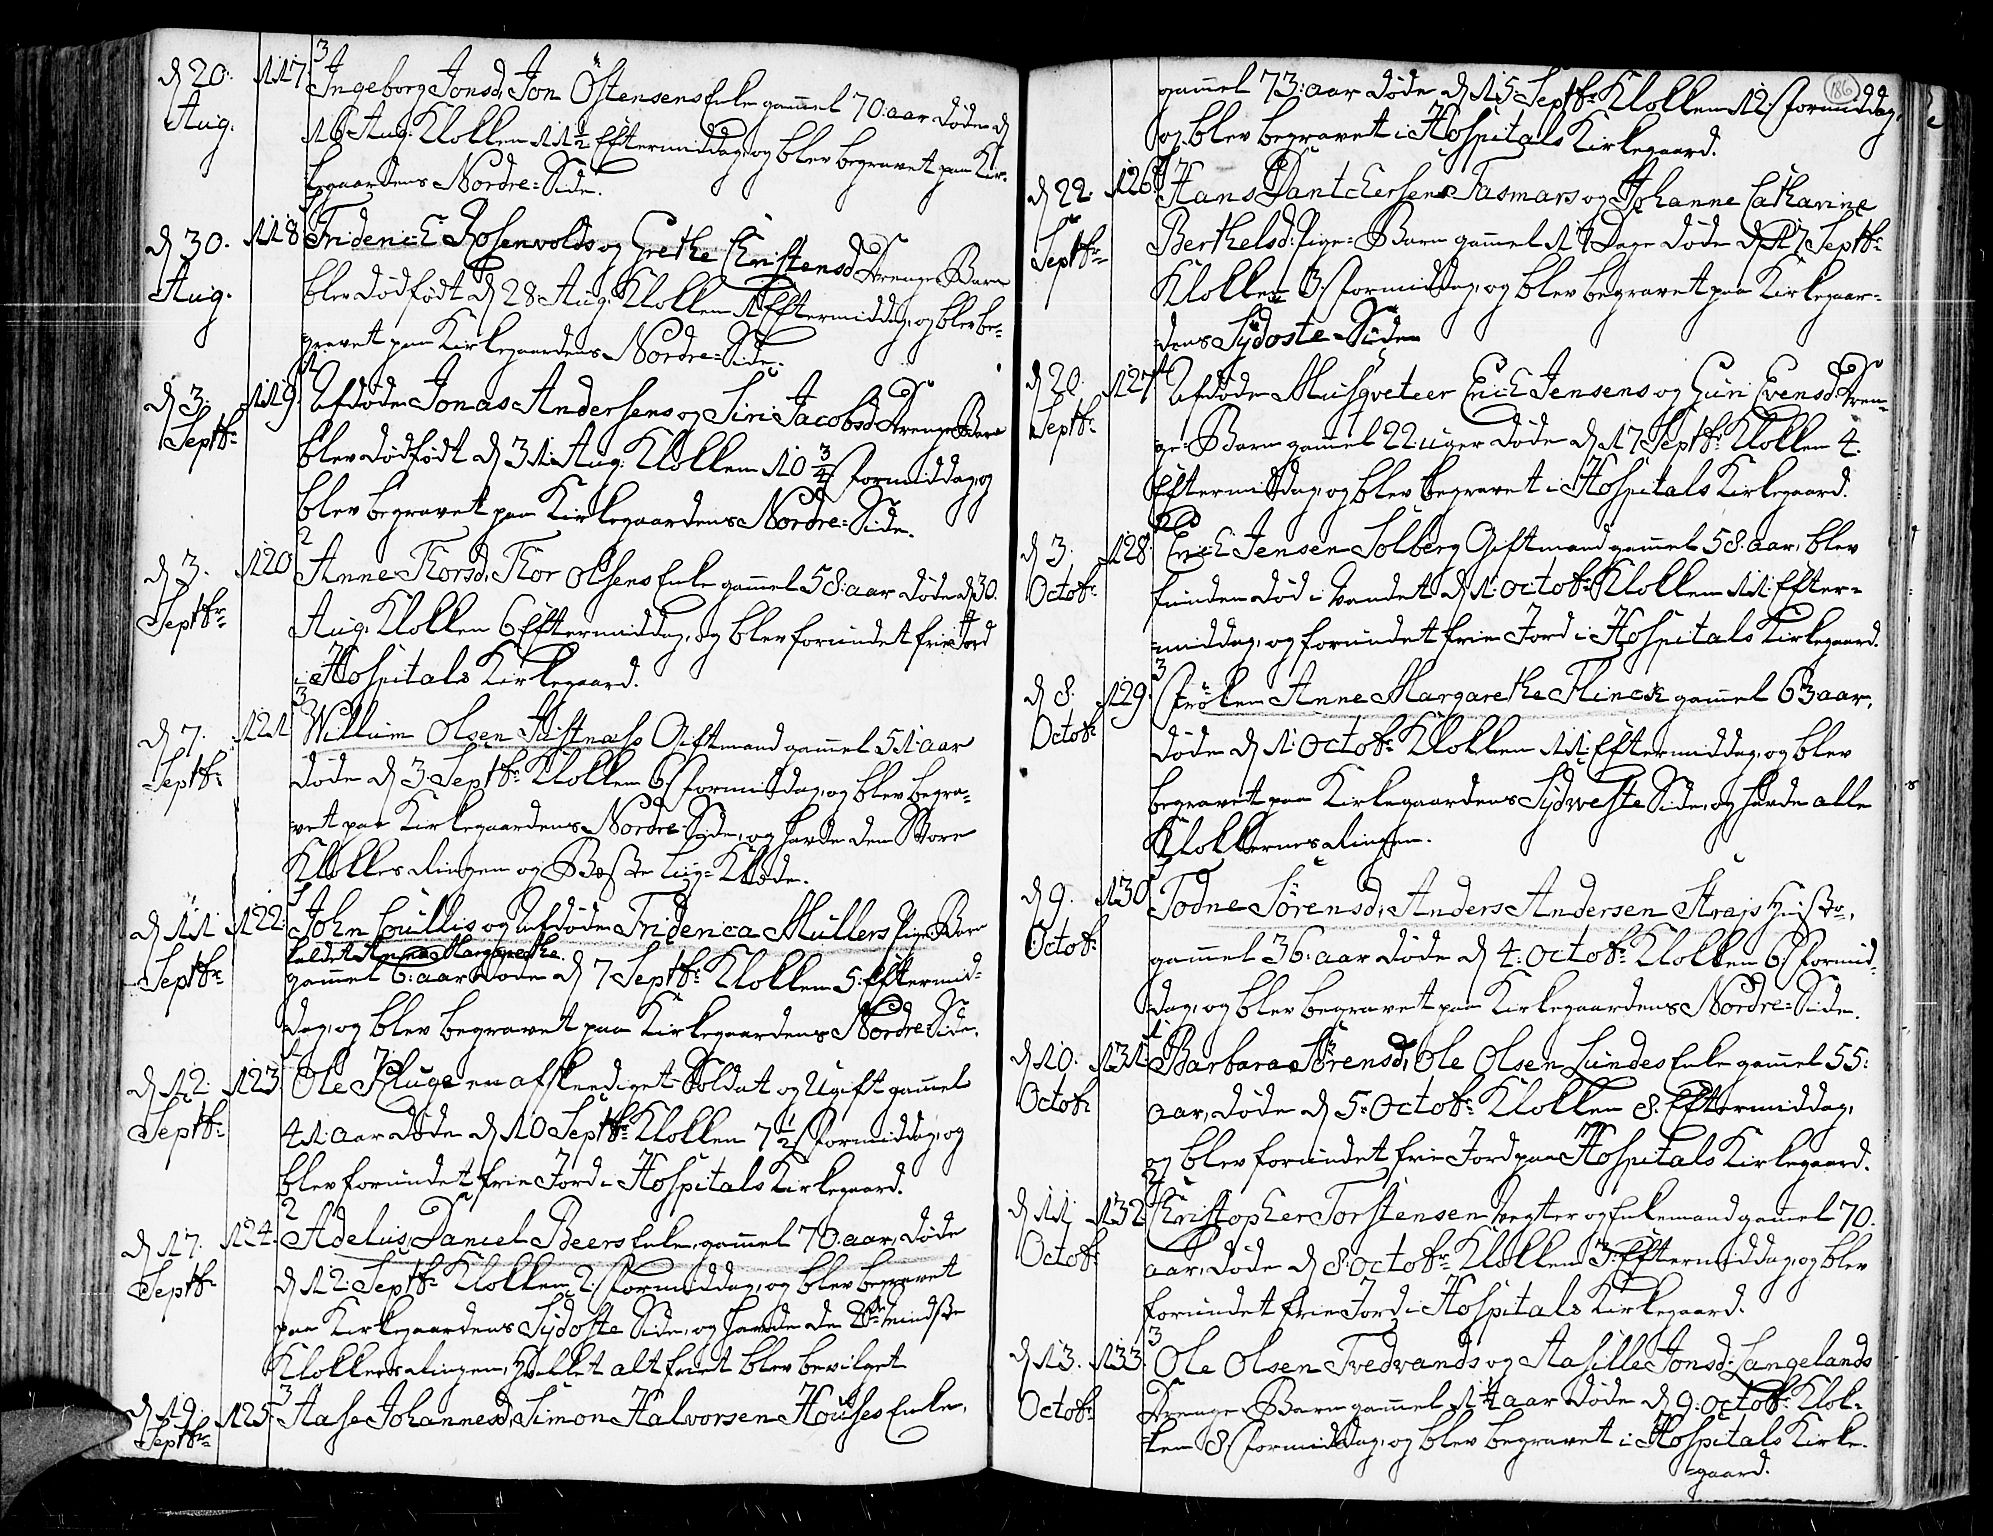 d 20. 117. 3 Ingeborg Jonsd. Jon Östensens Enke gamel 70: aar døde d
Aug. 16 Aug. Klokken 11½ Eftermiddag, og blev begravet paa Kir-
kegaardens Nordre-Side.
d 30. 118 Friderich Rosenvolds og Grethe Christensd Drenge Barn
Aug. blev dødfødt d 28 Aug. Klokken 1 Eftermiddag, og blev be-
gravet paa Kirkegaardens Nordre-Side.
d 3. 119. Afdøde Jonas Andersens og Siri Jacobsd Drenge Barn
Septbr. blev dødfødt d 31. Aug. Klokken 10¾ Formiddag, og
blev begravet paa Kirkegaardens Nordre-Side.
d 3. 120 2 Anne Thorsd. Thor Olsens Enke gamel 58: aar døde d 30.
Septbr. Aug. Klokken 6 Eftermiddag, og blev forundet frie Jord
i Hospitals Kirkegaard.
d 7. 121 3 Willium Olsen Giftmand gamel 51: aar
Septbr. døde d 3. Septbr. Klokken 6. Formiddag, og blev begra-
vet paa Kirkegaardens Nordre Side, og havde den Store
Klokkes Ringen og Beste Liig-Klæde.
d 11 122: John Cullis og Afdøde Friderica Müllers Pige Barn
kaldet Anna Margrethe.
Septbr. gamel 6: aar døde d 7 Septbr. Klokken 5. Eftermid-
dag, og blev begravet paa Kirkegaardens Nordre Side.
d 12. 123 Ole Kluge en afskeediget Soldat og Ugift gamel
Septbr. 41: aar døde d 10 Septbr. Klokken 7½ Formiddag, og
blev forundet frie Jord i Hospitals Kirkegaard.
d 17. 124. 2 Adelus, Daniel Beers Enke, gamel 70: aar, døde
Septbr. d 12: Septbr. Klokken 2. Formiddag, og blev begravet
paa Kirkegaardens Sydoste Side, og havde de 2de mindste
Klokkers Ringen, hvilket alt friet blev bevilget
d 19. 125 3 Aase Johannesd, Simon Halvorsen Houses Enke,
Septbr.
186
gamel 73: aar døde d 15. Septbr. Klokken 12. Formiddag,
og blev begravet i Hospitals Kirkegaard.
d 22. 126. Hans Dantchersens Tasmars og Johanne Catharine
Septbr. Berthelsd: Pige-Barn gamel 14 Dage døde d 17 Septbr.
Klokken 3. Formiddag, og blev begravet paa Kirkegaar-
dens Sydoste Side
d 20. 127 Afdøde Musqveteer Erich Jensens og Guri Evensd. Dren-
Septbr. ge-Barn gamel 22 uger døde d 17 Septbr. Klokken 4.
Eftermiddag, og blev begravet i Hospitals Kirkegaard.
d 3. 128. Erich Jensen Solberg Giftmand gamel 58: aar, blev
Octobr. funden død i Vandet d 1. Octobr. Klokken 11: Efter-
middag, og forundet frie Jord i Hospitals Kirkegaard.
d 8. 129. 3 Frøken Anne Margarethe Flinck gamel 63 aar,
Octobr. døde d 1. Octobr. Klokken 11. Eftermiddag, og blev
begravet paa Kirkegaardens Sydweste Side, og havde alle
Klokkernes Ringen.
d 9. 130 Todne Sørensd, Anders Andersen Strajs Hustro,
Octobr. gamel 36: aar døde d 4. Octobr. Klokken 6. Formid-
dag, og blev begravet paa Kirkegaardens Nordre-Side.
d 10. 131. Barbara Sørensd, Ole Olsen Lundes Enke gamel 55:
Octobr aar, døde d 5. Octobr. Klokken 8. Eftermiddag,
og blev forundet frie Jord paa Hospitals Kirkegaard.
d 11. 132 2 Christopher Torstensen Vegter og Enkemand gamel 70.
Octobr. aar, døde d 8. Octobr. Klokken 3. Eftermiddag, og blev
forundet frie Jord i Hospitals Kirkegaard.
d 13. 133 3 Ole Olsen Tvedvands og Aasille Jonsd. Langelands
Octobr. Drenge-Barn gamel aar døde d 9. Octobr. Klok-
ken 8. Formiddag, og blev begravet i Hospitals Kirke-
gaard.